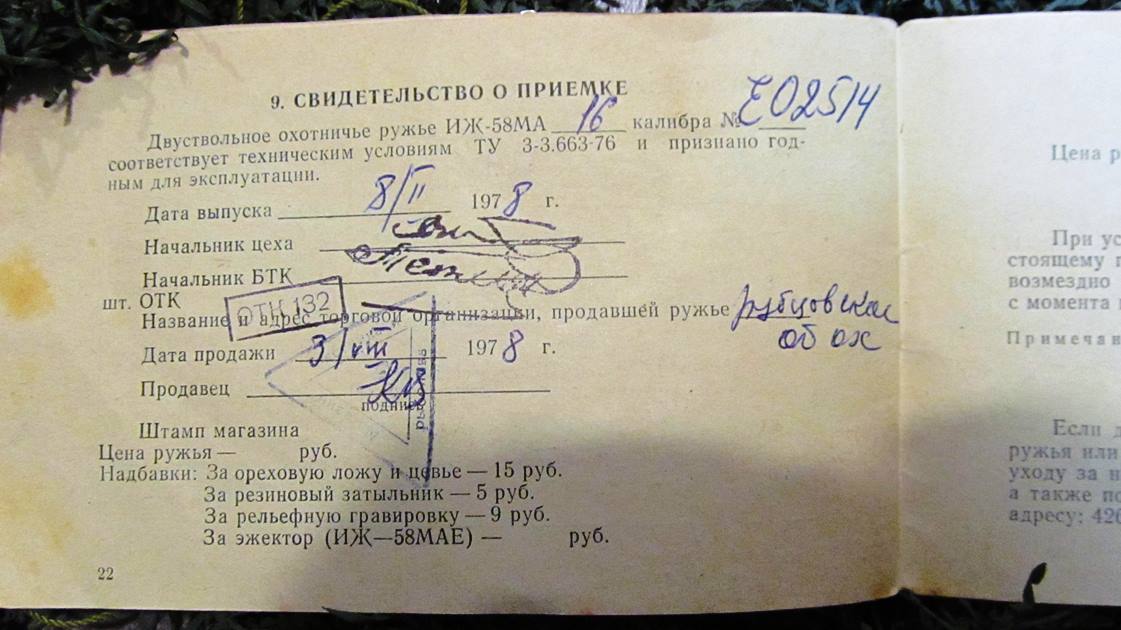 9. СВИДЕТЕЛЬСТВО О ПРИЕМКЕ
Двуствольное охотничье ружье ИЖ-58МА 16 калибра № Е02514
соответствует техническим условиям ТУ 3-3.663-76 и признано год-
ным для эксплуатации.
Дата выпуска 8/II 1978 г.
Начальник цеха
Начальник БТК
шт. ОТК
ОТК 132
Название и адрес торговой организации, продавшей ружье Рубцовское
об ох
Дата продажи 3/VIII 1978 г.
Продавец
подпись
Штамп магазина
Цена ружья — руб.
Надбавки: За ореховую ложу и цевье — 15 руб.
За резиновый затыльник — 5 руб.
За рельефную гравировку — 9 руб.
За эжектор (ИЖ—58МАЕ) — руб.
22
Цена р
При ус
стоящему п
возмездно
с момента
Примечан
Если д
ружья или
уходу за н
а также по
адресу: 426